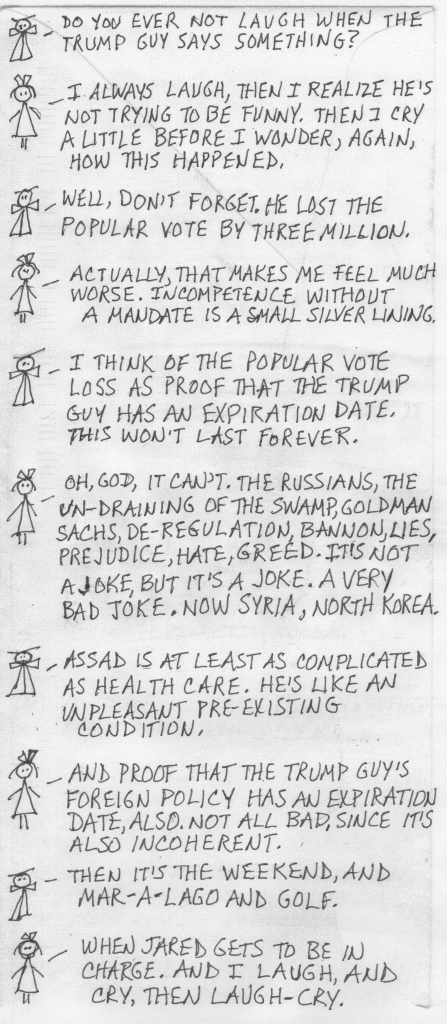 DO YOU EVER NOT LAUGH WHEN THE
TRUMP GUY SAYS SOMETHING?
I ALWAYS LAUGH, THEN I REALIZE HE'S
NOT TRYING TO BE FUNNY. THEN I CRY
A LITTLE BEFORE I WONDER, AGAIN,
HOW THIS HAPPENED.
WELL, DON'T FORGET. HE LOST THE
POPULAR VOTE BY THREE MILLION.
ACTUALLY, THAT MAKES ME FEEL MUCH
WORSE. INCOMPETENCE WITHOUT
A MANDATE IS A SMALL SILVER LINING.
I THINK OF THE POPULAR VOTE
LOSS AS PROOF THAT THE TRUMP
GUY HAS AN EXPIRATION DATE.
THIS WON'T LAST FOREVER.
OH, GOD, IT CAN'T. THE RUSSIANS, THE
UN-DRAINING OF THE SWAMP, GOLDMAN
SACHS, DE-REGULATION, BANNON, LIES,
PREJUDICE, HATE, GREED. IT'S NOT
A JOKE, BUT IT'S A JOKE. A VERY
BAD JOKE. NOW SYRIA, NORTH KOREA.
ASSAD IS AT LEAST AS COMPLICATED
AS HEALTH CARE. HE'S LIKE AN
UNPLEASANT PRE-EXISTING
CONDITION.
AND PROOF THAT THE TRUMP GUY'S
FOREIGN POLICY HAS AN EXPIRATION
DATE, ALSO. NOT ALL BAD, SINCE IT'S
ALSO INCOHERENT.
THEN IT'S THE WEEKEND, AND
MAR-A-LAGO AND GOLF.
WHEN JARED GETS TO BE IN
CHARGE. AND I LAUGH, AND
CRY, THEN LAUGH-CRY.